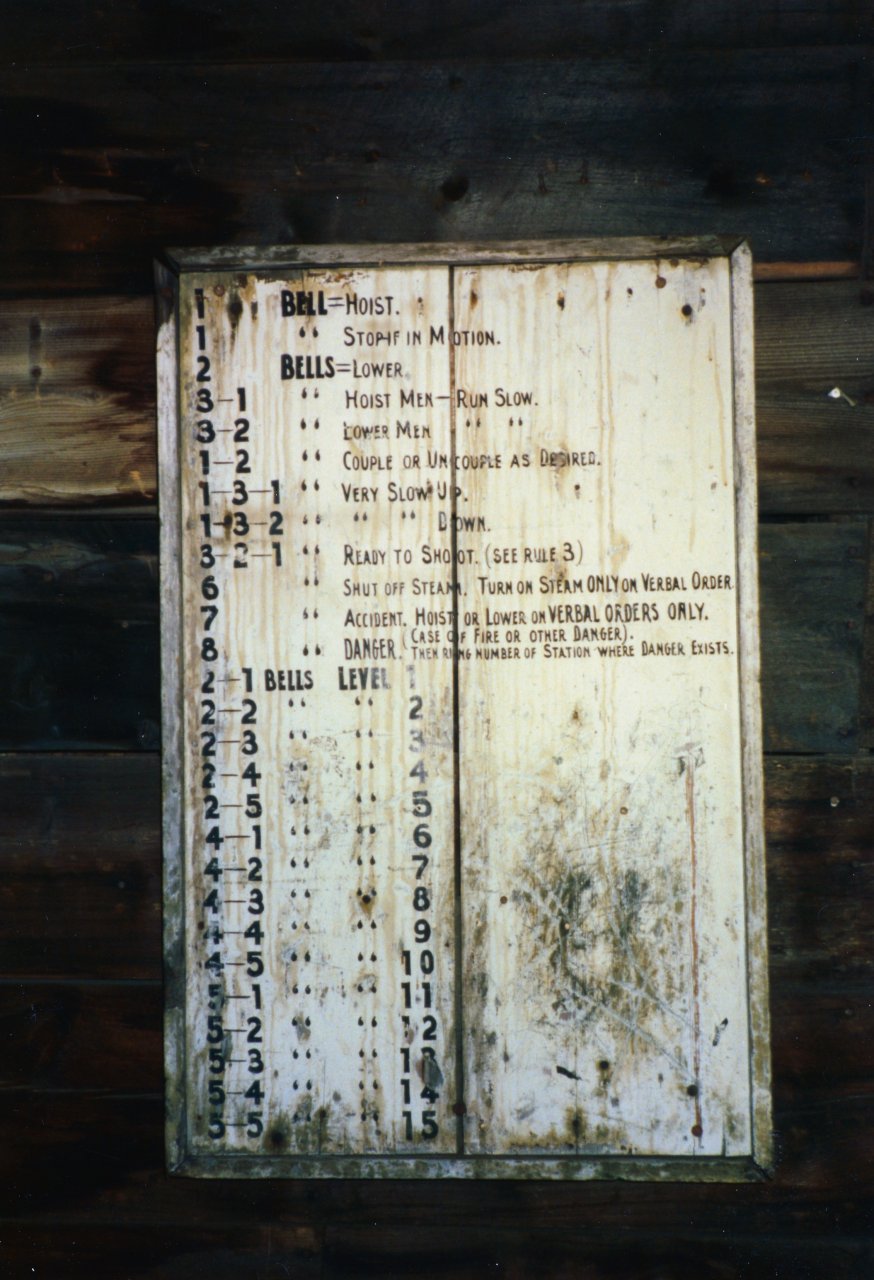 1 BELL=HOIST.
1 “ STOP-IF IN MOTION.
2 BELLS=LOWER.
3-1 “ HOIST MEN-RUN SLOW.
3-2 “ LOWER MEN “ “
1-2 “ COUPLE OR UNCOUPLE AS DESIRED.
1-3-1 “ VERY SLOW UP.
1-3-2 “ “ “ DOWN.
3-2-1 “ READY TO SHOOT. (SEE RULE 3)
6 “ SHUT OFF STEAM. TURN ON STEAM ONLY ON VERBAL ORDER.
7 “ ACCIDENT. HOIST OR LOWER ON VERBAL ORDERS ONLY.
(CASE OF FIRE OR OTHER DANGER).
8 “ DANGER. THEN RING NUMBER OF STATION WHERE DANGER EXISTS.
2-1 BELLS LEVEL 1
2-2 “ “ 2
2-3 “ “ 3
2-4 “ “ 4
2-5 “ “ 5
4-1 “ “ 6
4-2 “ “ 7
4-3 “ “ 8
4-4 “ “ 9
4-5 “ “ 10
5-1 “ “ 11
5-2 “ “ 12
5-3 “ “ 13
5-4 “ “ 14
5-5 “ “ 15